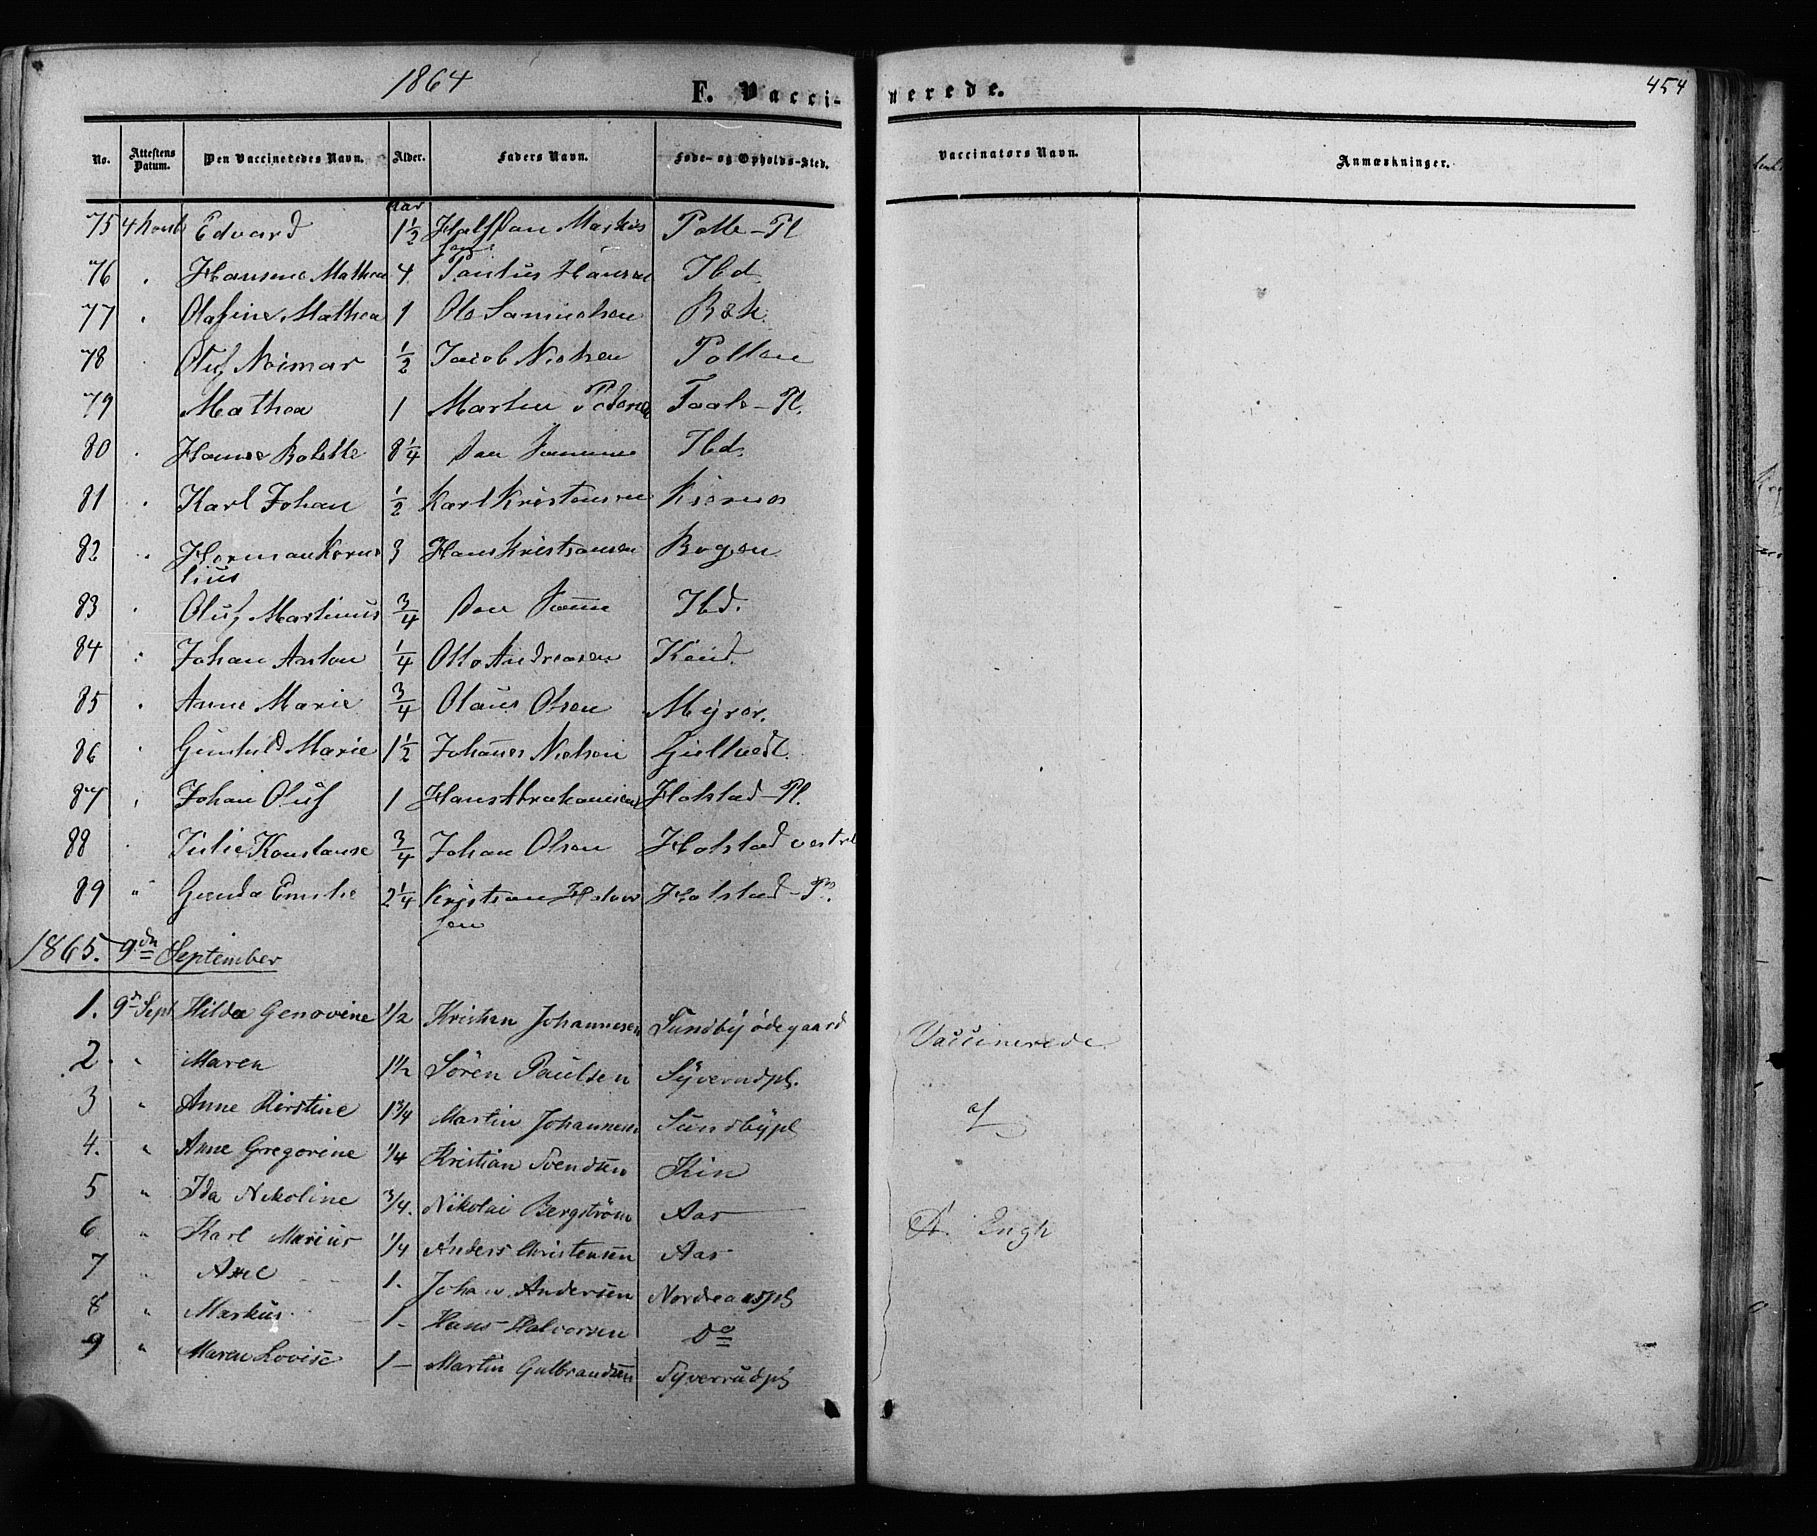 1864
F. Vacci-
nerede.
454
No. Attestens Datum. Den Vaccineredes Navn. Alder. Faders Navn. Føde- og Opholds-Sted. Vaccinators Navn. Anmærkninger.
Aar
75 Edvard 1½ Halfdan Markus
sen Palle-Pl
76 " Hansine Mathea 4 Paulus Hansen Ibd
77 " Olafine Mathea 1 Ole Samuelsen Bøk.
78 " Oluf 1/2 Jacob Nielsen Pollen
79 Mathea 1 Martin Pedersen Taale-Pl.
80 " Hanne Bolette 8¼ Den Samme Ibd.
81 " Karl Johan 1/2 Karl Kristensen Kjernes
82 " Herman Korne
lius 3 Hans Kristiansen Bogen
83 " Oluf Martinus 3/4 Den Samme Ibd.
84 " Johan Anton 1/4 Otto Andreasen
85 " Anne Marie 3/4 Olaus Olsen Myrer.
86 " Gunhild Marie 1½ Johannes Nielsen Gieltvedt.
87 " Johan Oluf 1 Hans Abrahamsen Holstad-Pl.
88 " Julie Konstanse 3/4 Johan Olsen Holstad vestre
89 " Gunda Emilie 2¼ Kristian Halvor
sen Holstad-Pl.
1865. 9de September
1. 9d Sept Hilda Genovine 1/2 Kristian Johannesen Sundby ødegaard
Vaccinerede
2 " Maren 1½ Sören Paulsen Syverudpl.
3 " Anne Kirstine 1¾ Martin Johannesen Sundbypl
af
4. " Anne Gregorine 1/4 Kristian Svendsen Kin
5 " Ida Nikoline 3/4. Nikolai Bergström Aas
A. Engh
6 " Karl Marius 1/4 Anders Christensen Aas
7 " Axel 1. Johan Andersen Nordreaaspl
8 " Markus 1- Hans Halvorsen do
9 " Maren Lovise 1- Martin Gulbrandsen Syverrudpl